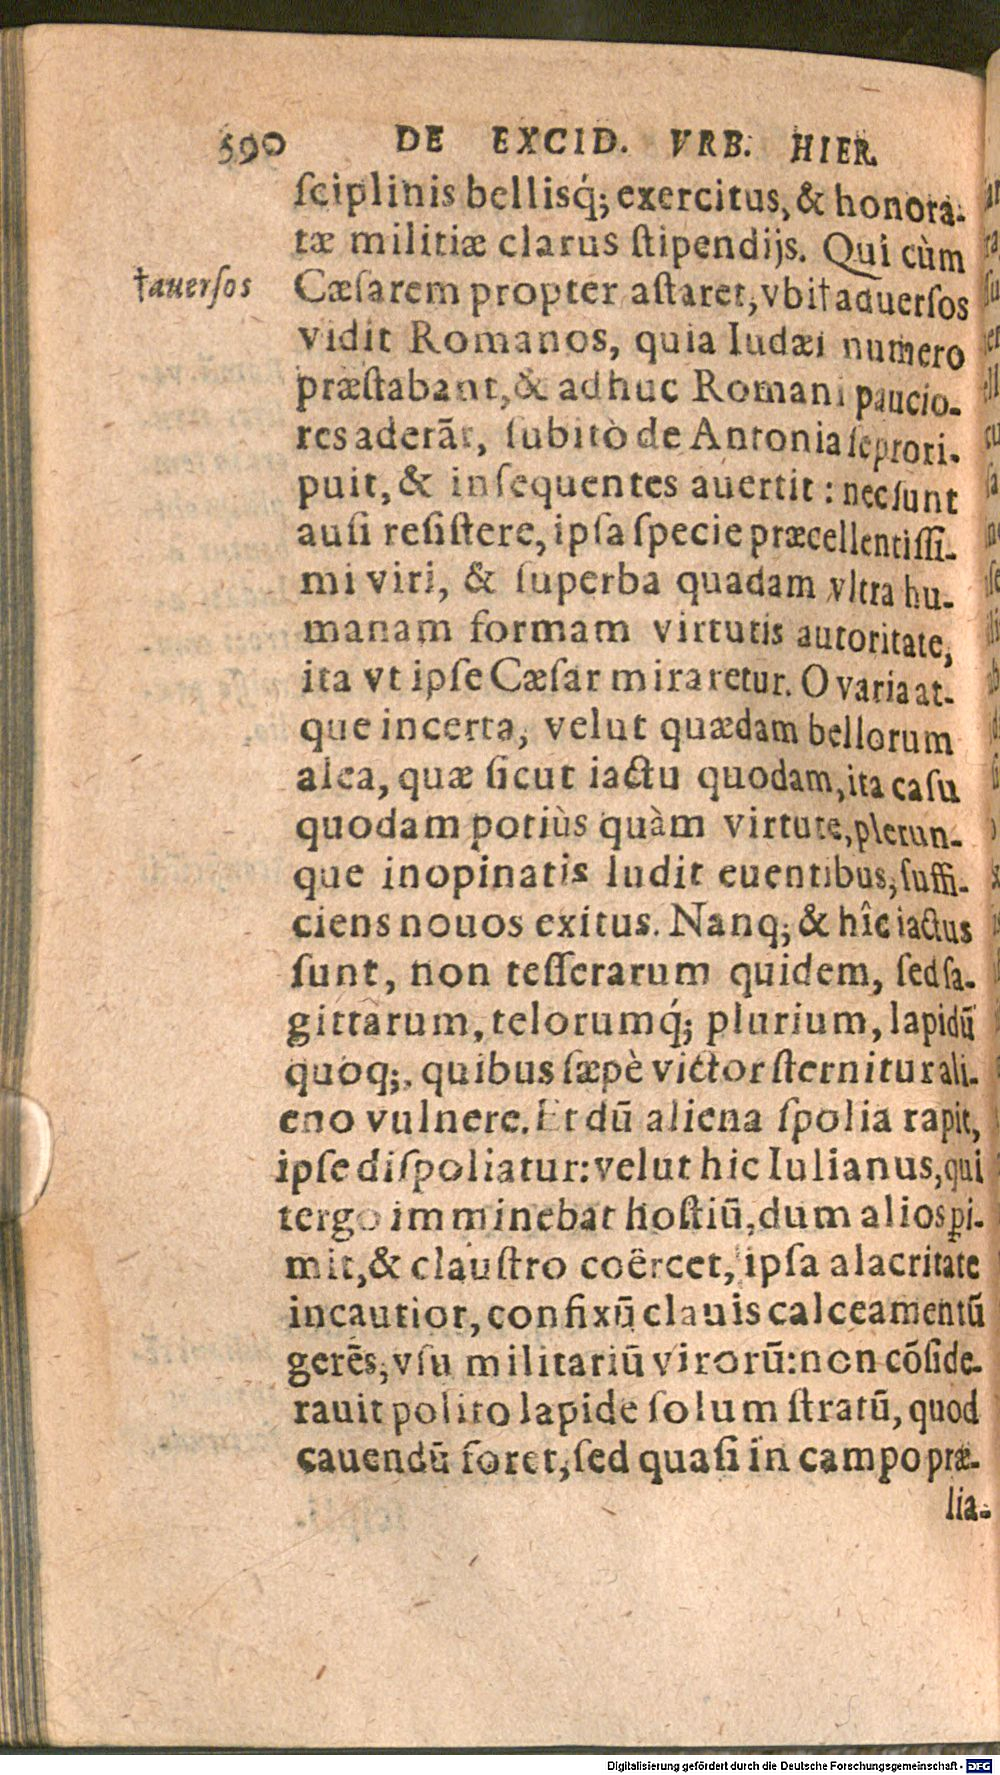 590 DE EXCID. VRB. HIER.
ſciplinis bellisq́; exercitus, & honora-
tæ militiæ clarus ſtipendijs. Qui cùm
†auerſos
Cæſarem propter aſtaret, vbi †aduerſos
vidit Romanos, quia Iudæi numero
præſtabant, & adhuc Romani paucio-
res aderāt, ſubitò de Antonia ſe prori-
puit, & inſequentes auertit: nec ſunt
auſi reſiſtere, ipſa ſpecie præcellentiſſi-
mi viri, & ſuperba quadam vltra hu-
manam formam virtutis autoritate,
ita vt ipſe Cæſar miraretur. O varia at-
que incerta, velut quædam bellorum
alea, quæ ſicut iactu quodam, ita caſu
quodam potiùs quàm virtute, plerun-
que inopinatis ludit euentibus, ſuffi-
ciens nouos exitus. Nanq; & hîc iactus
ſunt, non teſſerarum quidem, ſed ſa-
gittarum, telorumq́; plurium, lapidū
quoq;, quibus ſæpè victor ſternitur ali-
eno vulnere. Et dū aliena ſpolia rapit,
ipſe diſpoliatur: velut hic Iulianus, qui
tergo imminebat hoſtiū, dum alios ꝑi-
mit, & clauſtro coërcet, ipſa alacritate
incautior, confixū clauis calceamentū
gerēs, vſu militariū virorū: non cōſide-
rauit polito lapide ſolum ſtratū, quod
cauendū foret, ſed quaſi in campo præ-
lia-
Digitalisierung gefördert durch die Deutsche Forschungsgemeinschaft - DFG